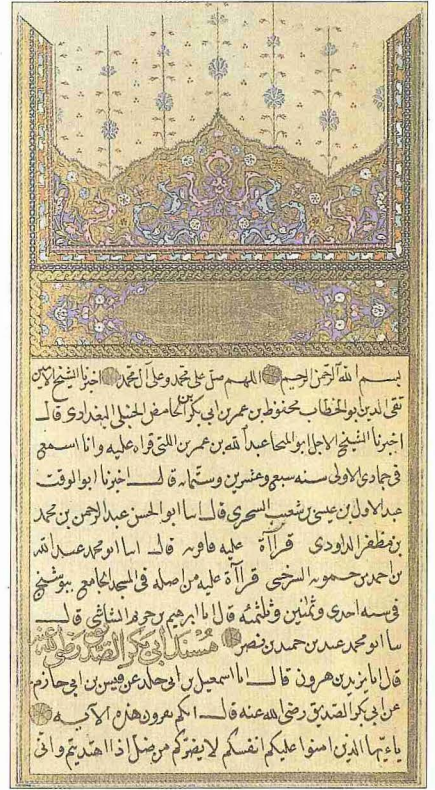 بسم الله الرحمن الرحيم اللهم صل على محمد وعلى آل محمد اخبرنا الشيخ الامين
تقي الدين ابو الخطاب محفوظ بن عمر بن ابي بكر بن الحامض الحنبلي البغدادي قال
اخبرنا الشيخ الاجل ابو المنجا عبد الله بن عمر بن اللتي قراه عليه وانا اسمع
في جمادي الاولى سنه سبع وعشرين وستمايه قال اخبرنا ابو الوقت
عبد الاول بن عيسى بن شعيب السجزي قال اسا ابو الحسن عبد الرحمن بن محمد
بن مظفر الداودي قراآة عليه فاقر به قال اسا ابو محمد عبد الله
بن احمد بن حمويه السرخسي قراآة عليه من اصله في المسجد الجامع ببوشنج
في سنه احدى وثمنين وثلثمئه قال ابا ابرهيم بن خريم الشاشي قال
سا ابو محمد عبد بن حميد بن نصر مسند ابي بكر الصديق رضي الله عنه
قال ابا يزيد بن هرون قال ابا اسمعيل بن ابي خلد عن قيس بن ابي حازم
عن ابي بكر الصديق رضي الله عنه قال انكم تقرون هذه الآيه
ياءيها الذين امنوا عليكم انفسكم لا يضركم من ضل اذا اهتديتم واني